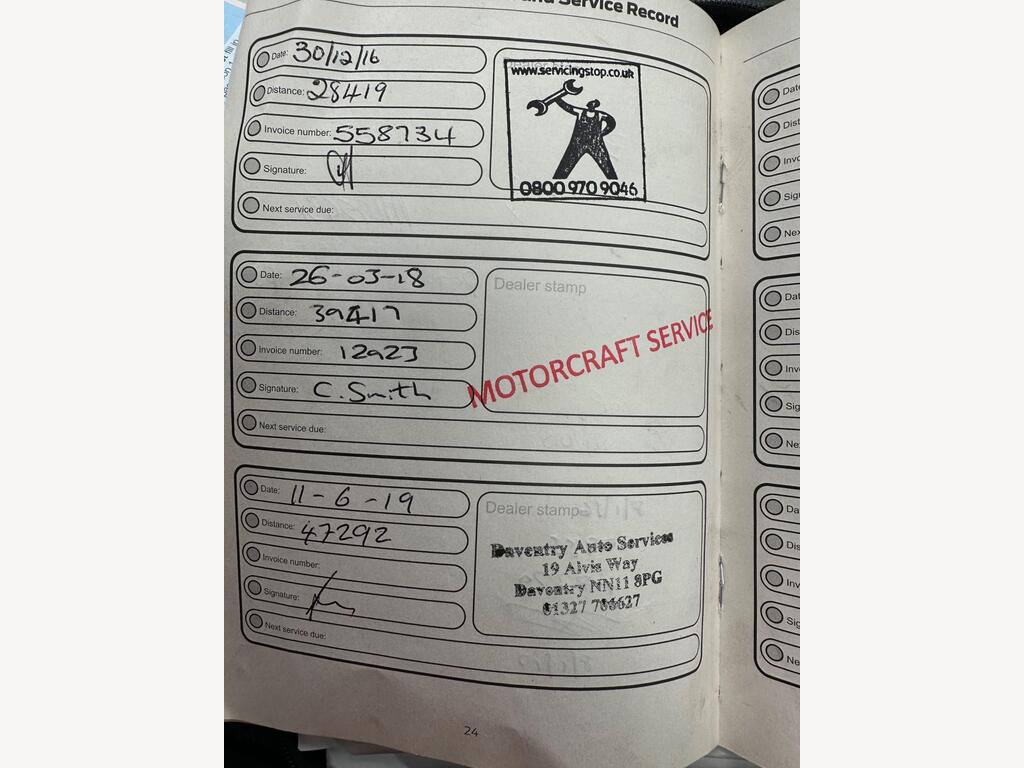 and Service Record
Date: 30/12/16
Distance: 28419
Invoice number: 558734
Signature:
Next service due:
www.servicingstop.co.uk
0800 970 9046
Date: 26-03-18
Distance: 39417
Invoice number: 12923
Signature: C. Smith
Next service due:
Dealer stamp
MOTORCRAFT SERVICE
Date: 11-6-19
Distance: 47292
Invoice number:
Signature:
Next service due:
Dealer stamp
Daventry Auto Services
19 Alvis Way
Daventry NN11 8PG
01327
24
Date
Dist
Invo
Sig
Nex
Dat
Dis
Inv
Sig
Ne
Da
Dis
Inv
Sig
Ne